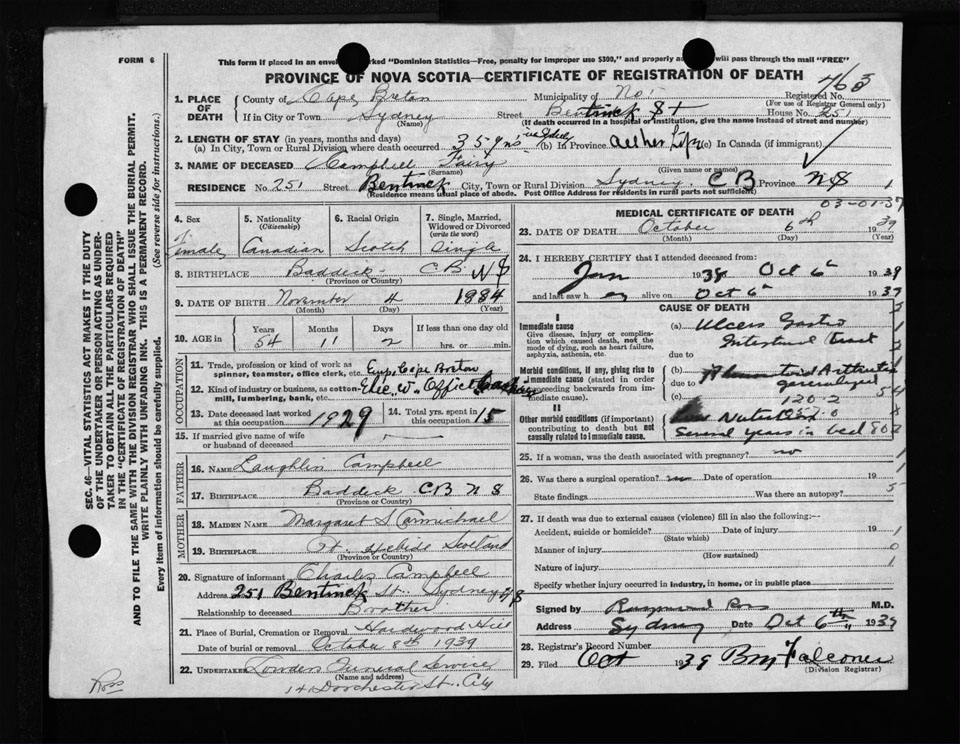 FORM 6
This form if placed in an envel rked "Dominion Statistics—Free, penalty for improper use $300," and properly a will pass through the mail "FREE"
PROVINCE OF NOVA SCOTIA—CERTIFICATE OF REGISTRATION OF DEATH
763
Registered No.
(For use of Registrar General only)
1. PLACE OF DEATH
County of Cape Breton Municipality of No.
If in City or Town Sydney Street Bentinck St House No. 251
(Name) (If death occurred in a hospital or institution, give the name instead of street and number)
2. LENGTH OF STAY (in years, months and days)
(a) In City, Town or Rural Division where death occurred 35 yrs (b) In Province all her life (c) In Canada (if immigrant)
3. NAME OF DECEASED Campbell Fairy
(Surname) (Given name or names)
RESIDENCE No. 251 Street Bentinck City, Town or Rural Division Sydney C B Province N S
(Residence means usual place of abode. Post Office Address for residents in rural parts not sufficient)
4. Sex Female
5. Nationality (Citizenship) Canadian
6. Racial Origin Scotch
7. Single, Married, Widowed or Divorced (write the word) Single
8. BIRTHPLACE Baddeck C B. N S
(Province or Country)
9. DATE OF BIRTH November 4 1884
(Month) (Day) (Year)
10. AGE in Years 54 Months 11 Days 2 If less than one day old hrs. or min.
OCCUPATION
11. Trade, profession or kind of work as spinner, teamster, office clerk, etc. Emp. Cape Breton
12. Kind of industry or business, as cotton mill, lumbering, bank, etc. Elec. W. Office
13. Date deceased last worked at this occupation 1929 14. Total yrs. spent in this occupation 15
15. If married give name of wife or husband of deceased —
FATHER
16. NAME Laughlin Campbell
17. BIRTHPLACE Baddeck CB N S
MOTHER
18. MAIDEN NAME Margaret S Carmichael
19. BIRTHPLACE Scotland
(Province or Country)
20. Signature of informant Charles Campbell
Address 251 Bentinck St. Sydney
Relationship to deceased Brother
21. Place of Burial, Cremation or Removal Hardwood Hill
Date of burial or removal October 8th 1939
22. UNDERTAKER Funeral Service
(Name and address)
14 Dorchester St. City
MEDICAL CERTIFICATE OF DEATH 03-01-37
23. DATE OF DEATH October 6th 1939
(Month) (Day) (Year)
24. I HEREBY CERTIFY that I attended deceased from:
Jan 1938 Oct 6 1939
and last saw h er alive on Oct 6 1939
CAUSE OF DEATH
I
Immediate cause
Give disease, injury or complication which caused death, not the mode of dying, such as heart failure, asphyxia, asthenia, etc.
(a) Ulcers Gastro Intestinal Tract
due to
Morbid conditions, if any, giving rise to immediate cause (stated in order proceeding backwards from immediate cause).
(b) Rheumatoid Arthritis
due to generalized
(c) 120-2
II
Other morbid conditions (if important) contributing to death but not causally related to immediate cause.
Several years in bed
25. If a woman, was the death associated with pregnancy? no
26. Was there a surgical operation? no Date of operation 19
State findings Was there an autopsy?
27. If death was due to external causes (violence) fill in also the following:—
Accident, suicide or homicide? Date of injury 19
(State which)
Manner of injury
(How sustained)
Nature of injury
Specify whether injury occurred in industry, in home, or in public place
Signed by Raymond Ross M.D.
Address Sydney Date Oct 6th 1939
28. Registrar's Record Number
29. Filed Oct 1939 Falconer
(Division Registrar)
Ross
SEC. 46—VITAL STATISTICS ACT MAKES IT THE DUTY OF THE UNDERTAKER OR PERSON ACTING AS UNDERTAKER TO OBTAIN ALL THE PARTICULARS REQUIRED IN THE "CERTIFICATE OF REGISTRATION OF DEATH" AND TO FILE THE SAME WITH THE DIVISION REGISTRAR WHO SHALL ISSUE THE BURIAL PERMIT.
WRITE PLAINLY WITH UNFADING INK. THIS IS A PERMANENT RECORD.
Every item of information should be carefully supplied. (See reverse side for instructions.)